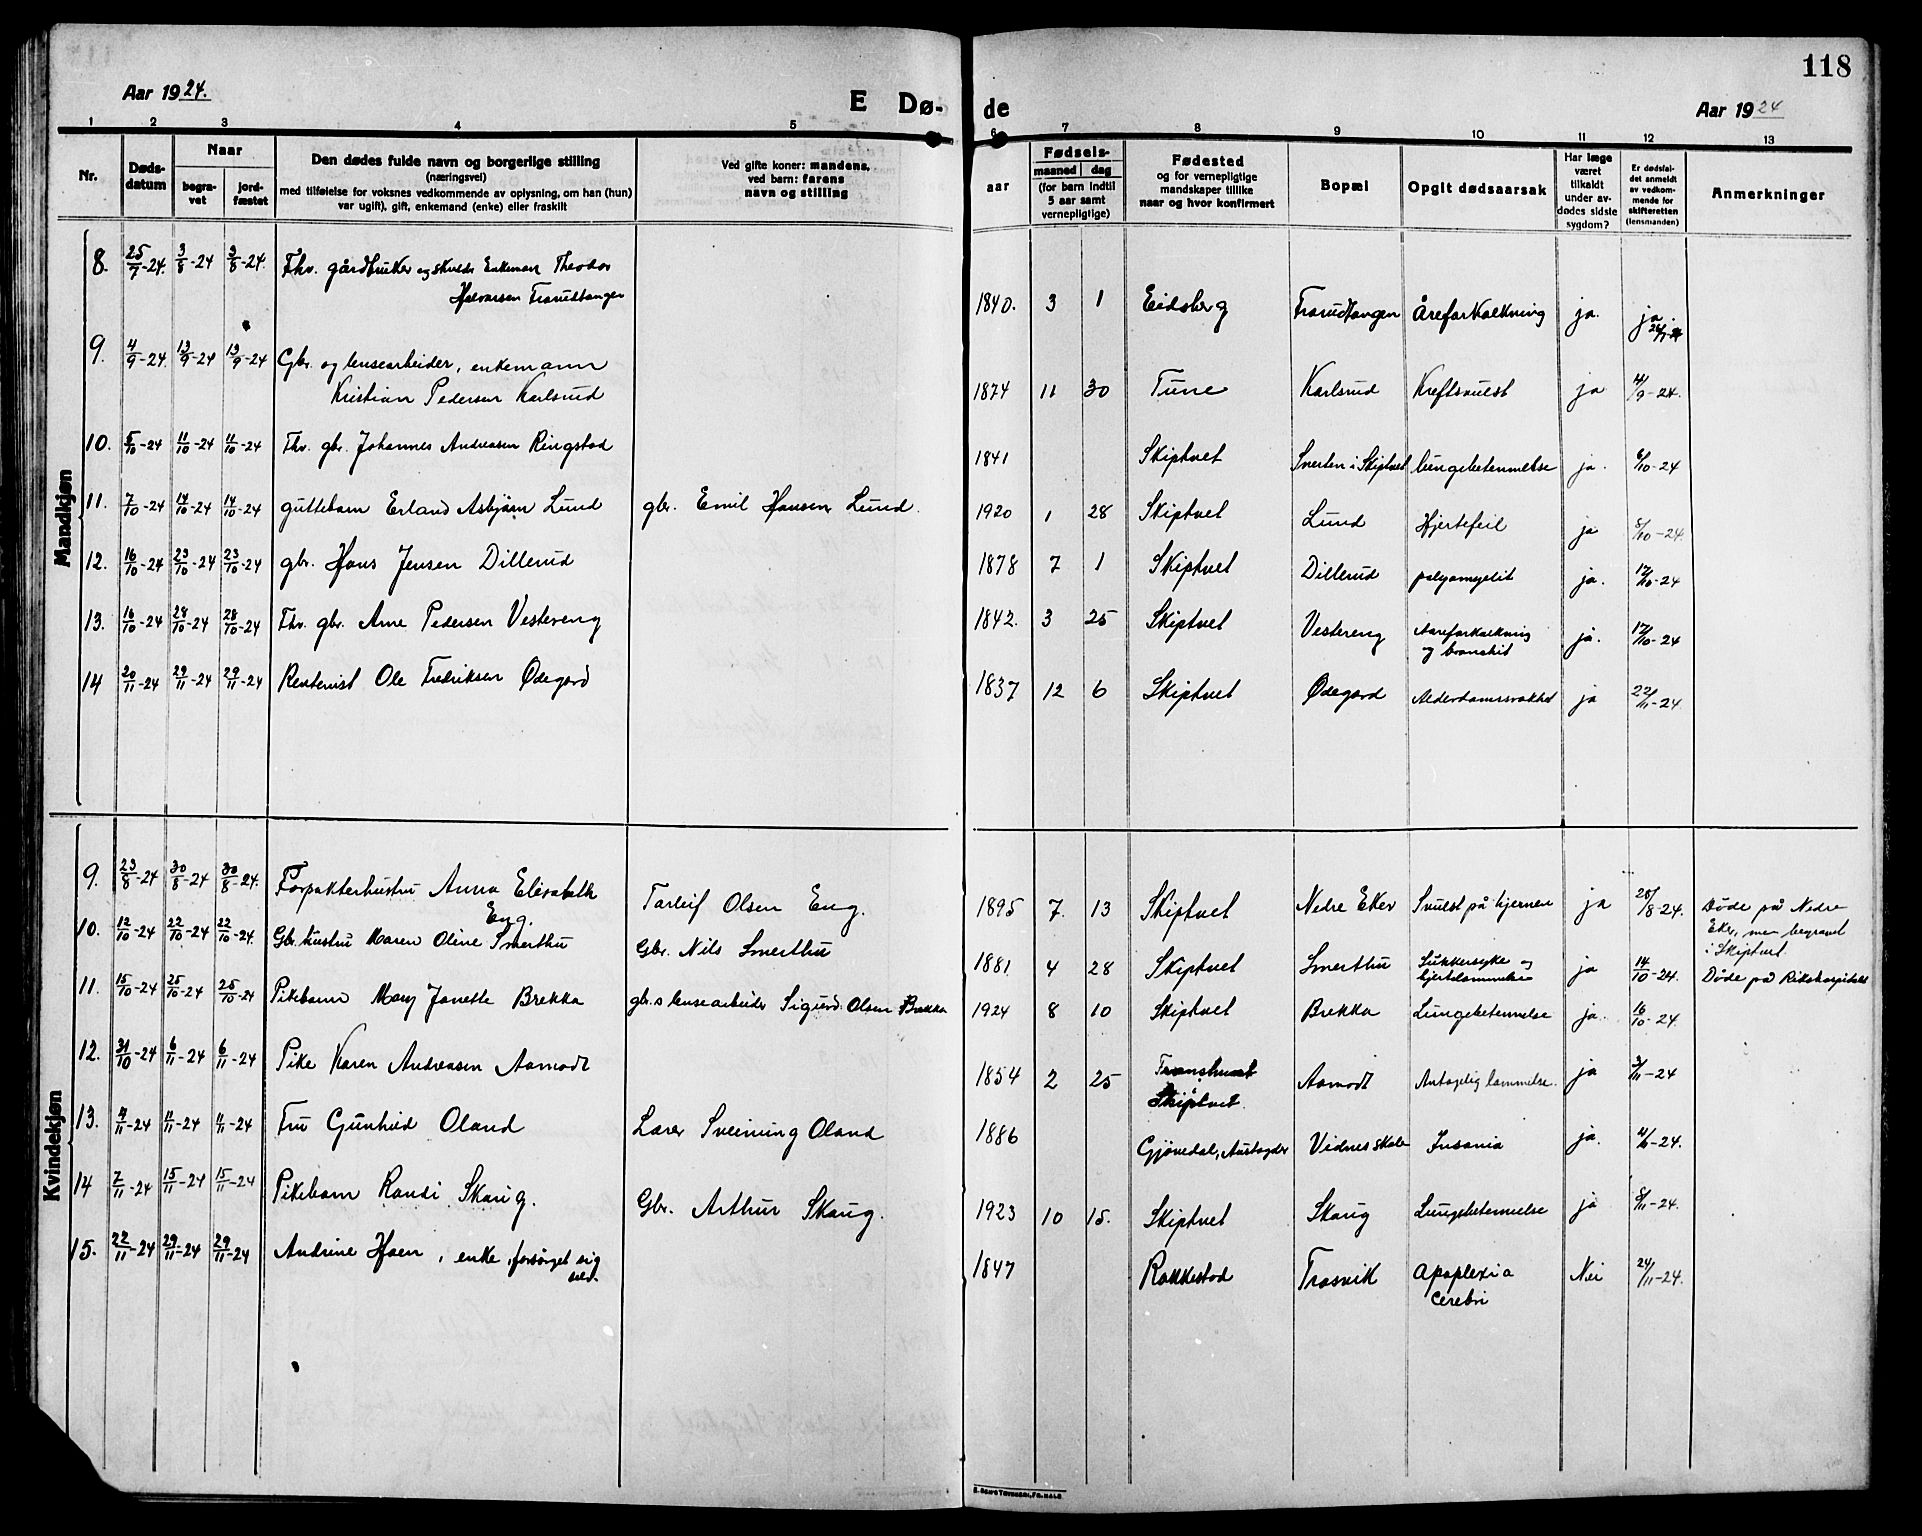 118
Aar 1924.
E Dø-
de
Aar 1924
1 2 3 4 5 6 7 8 9 10 11 12 13
Nr.
Døds-
datum
Naar
begra-
vet
jord-
fæstet
Den dødes fulde navn og borgerlige stilling
(næringsvei)
med tilføielse for voksnes vedkommende av oplysning, om han (hun)
var ugift), gift, enkemand (enke) eller fraskilt
Ved gifte koner: mandens,
ved barn: farens
navn og stilling
aar
Fødsels-
maaned dag
(for barn indtil
5 aar samt
vernepligtige)
Fødested
og for vernepligtige
mandskaper tillike
naar og hvor konfirmert
Bopæl
Opgit dødsaarsak
Har læge
været
tilkaldt
under av-
dødes sidste
sygdom?
Er dødsfal-
det anmeldt
av vedkom-
mende for
skifteretten
(lensmanden)
Anmerkninger
Mandkjøn
8. 25/7-24. 3/8-24 3/8-24. Fhv. gårdbruker og Enkeman Theodor
Halvorsen Traudtangen
1840. 3 1 Eidsberg Traudtangen Åreforkalkning ja. ja
9. 4/9-24. 13/9-24 13/9-24 Gbr. og lensearbeider, enkemann
Kristian Pedersen Karlsrud
1874 11 30 Tune Karlsrud Kreftsvulst ja 4/9-24.
10. 5/10-24 11/10-24 11/10-24 Fhv. gbr. Johannes Andreasen Ringstad
1841 Skiptvet i Skiptvet lungebetennelse ja. 6/10-24
11. 7/10-24 14/10-24 14/10-24 guttebarn Erland Asbjørn Lund gbr. Emil Hansen Lund.
1920 1 28 Skiptvet Lund Hjertefeil ja 8/10-24.
12. 16/10-24 23/10-24 23/10-24 gbr. Hans Jensen Dillerud
1878 7 1 Skiptvet Dillerud polyomyelit ja. 17/10-24
13. 16/10-24 28/10-24 28/10-24 Fhv. gbr. Arne Pedersen Vestereng
1842. 3 25 Skiptvet Vestereng Aareforkalkning
og bronchit ja. 17/10-24
14 20/11-24 29/11-24 29/11-24 Rentenist Ole Fredriksen Ødegård
1837 12 6 Skiptvet Ødegard Alderdomssvakhet ja 22/11-24.
Kvindekjøn
9. 23/8-24 30/8-24 30/8-24. Forpakterhustru Anna Elisabeth
Eng. Torleif Olsen Eng.
1895 7. 13 Skiptvet Nedre Eker Svulst på hjernen ja 25/8-24. Døde på Nedre
Eker, men begravet
i Skiptvet.
10. 12/10-24 22/10-24 22/10-24. Gbr. hustru Maren Oline Smerthu Gbr. Nils Smerthu
1881 4 28 Skiptvet Smerthu Sukkersyke og
hjertelammelse ja 14/10-24. Døde på Rikshospitalet
11. 15/10-24 25/10-24 25/10-24 Pikebarn Mary Janette Brekka gbr. s lensearbeider Sigurd Olsen Brekka
1924 8 10 Skiptvet Brekka Lungebetennelse ja. 16/10-24.
12. 31/10-24 6/11-24 6/11-24 Pike Karen Andreasen Aamodt
1854 2 25 Skiptvet. Aamodt Antagelig lammelse. ja 3/11-24
13. 4/11-24 11/11-24 11/11-24 Fru Gunhild Oland Lærer Sveinung Oland
1886 Gjøvedal, Austagder Vidnes skole Insania ja.
14 7/11-24 15/11-24 15/11-24 Pikebarn Randi Skaug. Gbr. Arthur Skaug.
1923 10 15. Skiptvet Skaug Lungebetennelse ja 8/11-24.
15. 22/11-24 29/11-24 29/11-24 Andrine Hoen, enke, forsørget sig
selv.
1847 Rakkestad Trosvik Apoplexia
cerebri Nei 24/11-24.